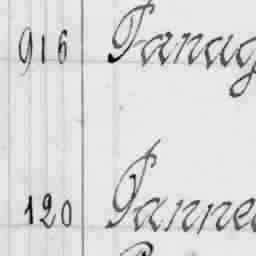 916 Panag
120 Panne